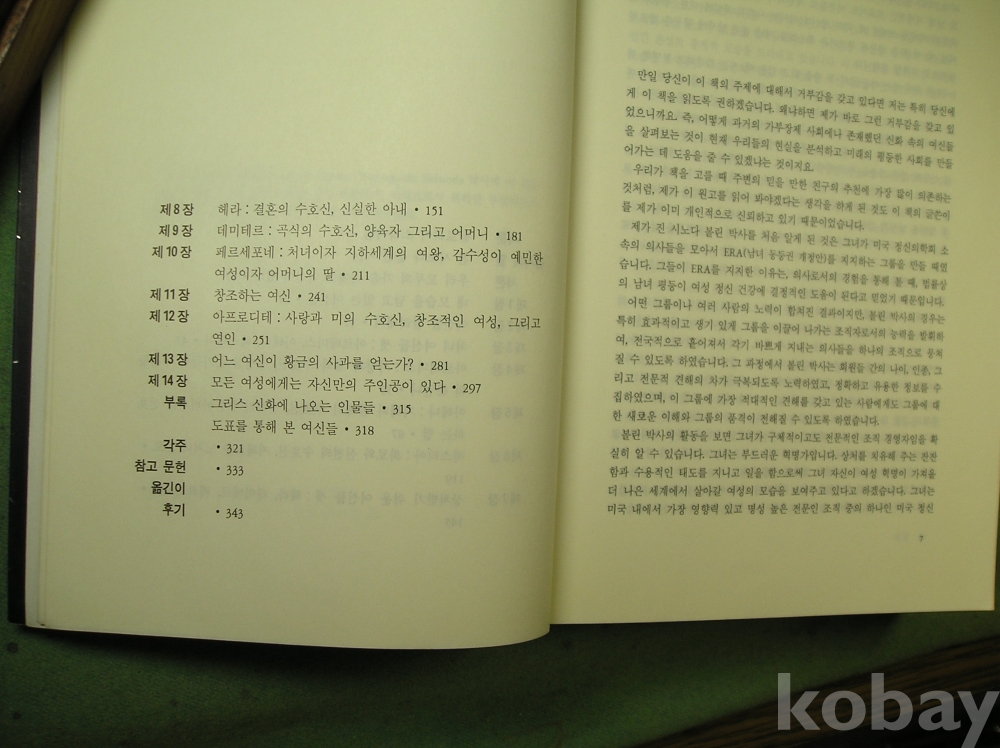 제8장 헤라 : 결혼의 수호신, 신실한 아내 • 151
제9장 데미테르 : 곡식의 수호신, 양육자 그리고 어머니 • 181
제10장 페르세포네 : 처녀이자 지하세계의 여왕, 감수성이 예민한
여성이자 어머니의 딸 • 211
제11장 창조하는 여신 • 241
제12장 아프로디테 : 사랑과 미의 수호신, 창조적인 여성, 그리고
연인 • 251
제13장 어느 여신이 황금의 사과를 얻는가? • 281
제14장 모든 여성에게는 자신만의 주인공이 있다 • 297
부록 그리스 신화에 나오는 인물들 • 315
도표를 통해 본 여신들 • 318
각주 • 321
참고 문헌 • 333
옮긴이
후기 • 343
만일 당신이 이 책의 주제에 대해서 거부감을 갖고 있다면 저는 특히 당신에
게 이 책을 읽도록 권하겠습니다. 왜냐하면 제가 바로 그런 거부감을 갖고 있
었으니까요. 즉, 어떻게 과거의 가부장제 사회에나 존재했던 신화 속의 여신들
을 살펴보는 것이 현재 우리들의 현실을 분석하고 미래의 평등한 사회를 만들
어가는 데 도움을 줄 수 있겠냐는 것이지요.
우리가 책을 고를 때 주변의 믿을 만한 친구의 추천에 가장 많이 의존하는
것처럼, 제가 이 원고를 읽어 봐야겠다는 생각을 하게 된 것도 이 책의 글쓴이
를 제가 이미 개인적으로 신뢰하고 있기 때문이었습니다.
제가 진 시노다 볼린 박사를 처음 알게 된 것은 그녀가 미국 정신의학회 소
속의 의사들을 모아서 ERA(남녀 동등권 개정안)를 지지하는 그룹을 만들 때였
습니다. 그들이 ERA를 지지한 이유는, 의사로서의 경험을 통해 볼 때, 법률상
의 남녀 평등이 여성 정신 건강에 결정적인 도움이 된다고 믿었기 때문입니다.
어떤 그룹이나 여러 사람의 노력이 합쳐진 결과이지만, 볼린 박사의 경우는
특히 효과적이고 생기 있게 그룹을 이끌어 나가는 조직자로서의 능력을 발휘하
여, 전국적으로 흩어져서 각기 바쁘게 지내는 의사들을 하나의 조직으로 뭉쳐
질 수 있도록 하였습니다. 그 과정에서 볼린 박사는 회원들 간의 나이, 인종, 그
리고 전문적 견해의 차가 극복되도록 노력하였고, 정확하고 유용한 정보를 수
집하였으며, 이 그룹에 가장 적대적인 견해를 갖고 있는 사람에게도 그룹에 대
한 새로운 이해와 그룹의 품격이 전해질 수 있도록 하였습니다.
볼린 박사의 활동을 보면 그녀가 구체적이고도 전문적인 조직 경영자임을 확
실히 알 수 있습니다. 그녀는 부드러운 혁명가입니다. 상처를 치유해 주는 잔잔
함과 수용적인 태도를 지니고 일을 함으로써 그녀 자신이 여성 혁명이 가져올
더 나은 세계에서 살아갈 여성의 모습을 보여주고 있다고 하겠습니다. 그녀는
미국 내에서 가장 영향력 있고 명성 높은 전문인 조직 중의 하나인 미국 정신
7
kobay